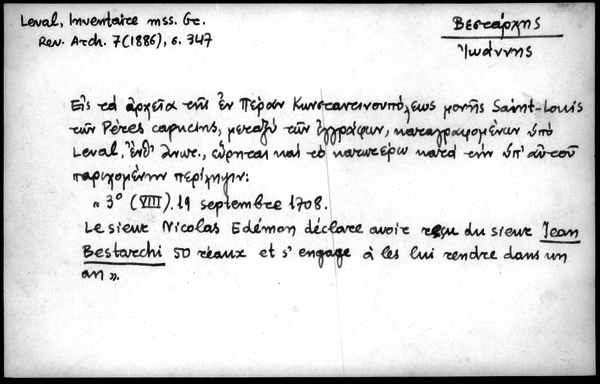 Leval, Inventaire mss. Gr.
Rev. Arch. 7(1886), σ. 347
Βεστάρχης
Ἰωάννης
Εἰς τὰ ἀρχεῖα τῆς ἐν Πέραν Κωνσταντινουπόλεως μονῆς Saint-Louis
τῶν Pères capucins, μεταξὺ τῶν ἐγγράφων, καταγραφομένων ὑπὸ
Leval, ἔνθ' ἀνωτ., εὕρηται καὶ τὸ κατωτέρω κατὰ τὴν ὑπ' αὐτοῦ
παρεχομένην περίληψιν:
" 3º (VIII). 19 septembre 1708.
Le sieur Nicolas Edémon déclare avoir reçu du sieur Jean
Bestarchi 50 réaux et s'engage à les lui rendre dans un
an ".